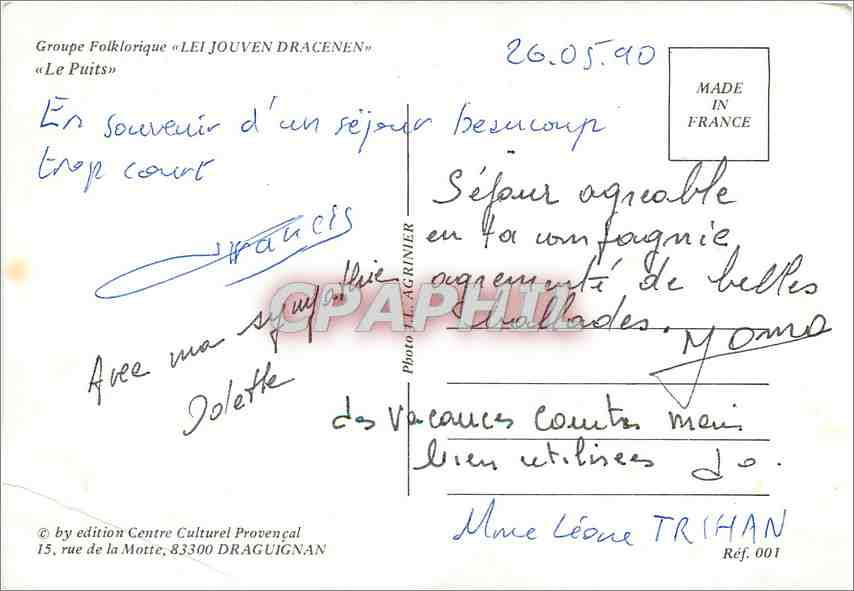 Groupe Folklorique «LEI JOUVEN DRACENEN»
«Le Puits»
26.05.90
MADE
IN
FRANCE
En souvenir d'un séjour beaucoup
trop court
Francis
Avec ma sympathie
Odette
Photo J.L. AGRINIER
Séjour agreable
en ta compagnie
agrementé de belles
ballades.
Momo
des vacances courtes mais
bien utilisees Jo.
Mme Léone TRIHAN
© by edition Centre Culturel Provençal
15, rue de la Motte, 83300 DRAGUIGNAN
Réf. 001
CPAPHIL